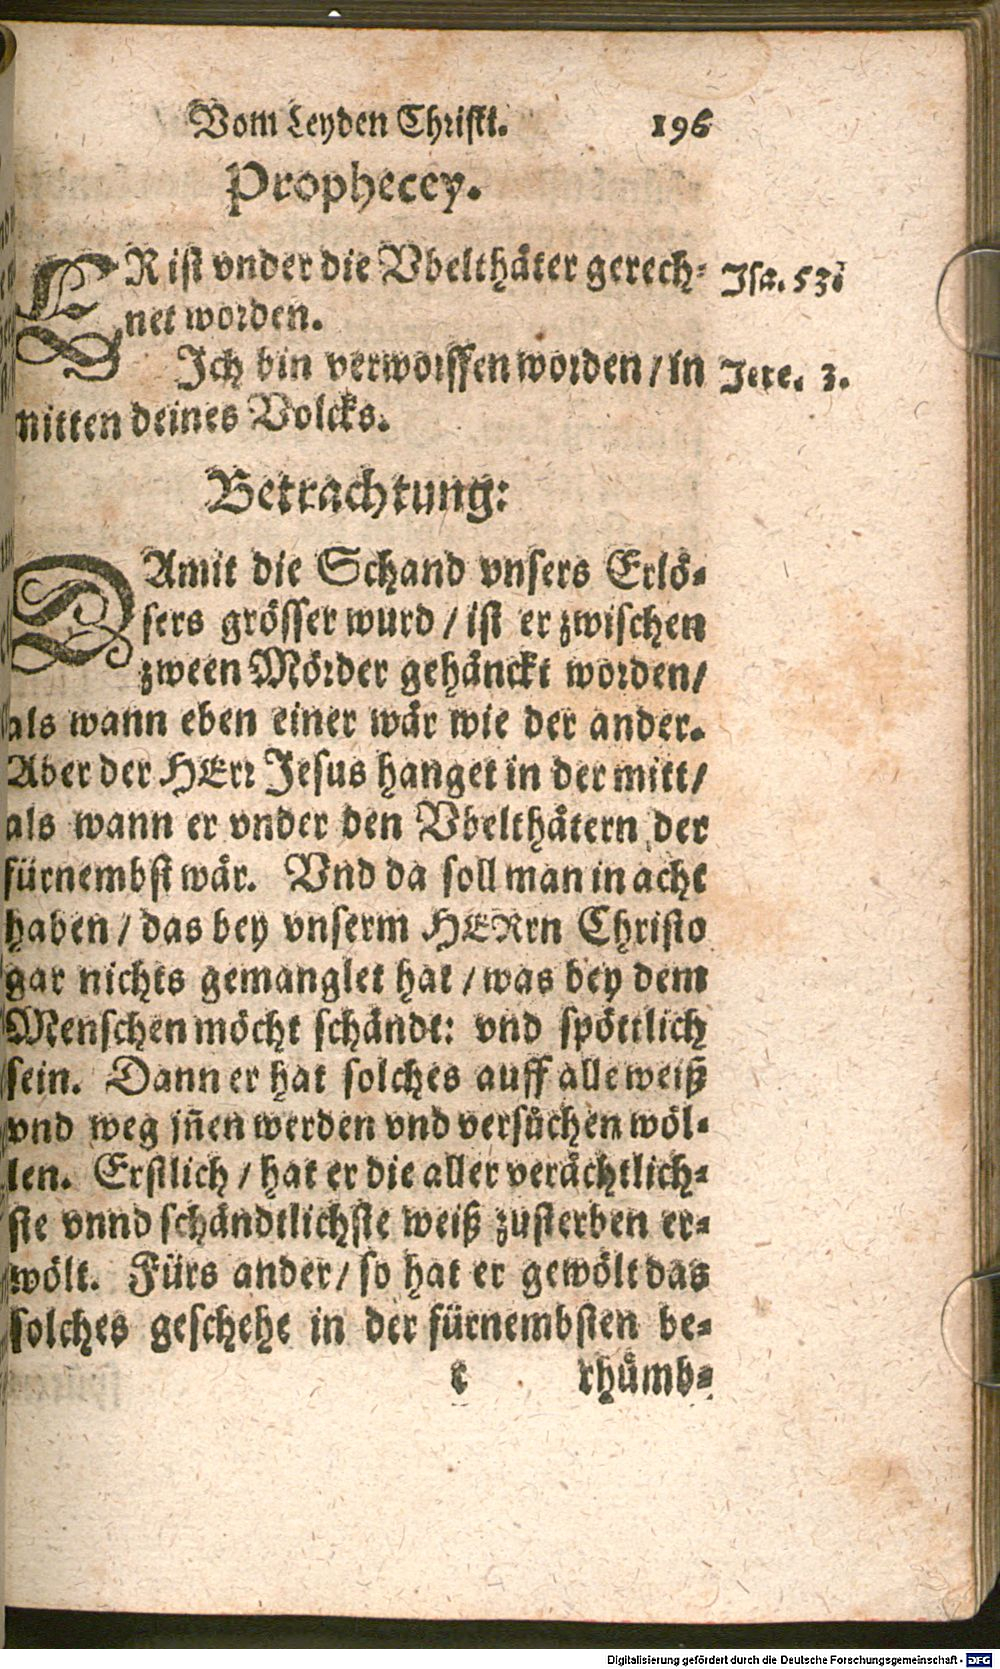 Vom Leyden Christi. 196
Prophecey.
ER ist vnder die Vbelthäter gerech- Isa. 53.
net worden.
Ich bin verworffen worden / in Jere. 3.
mitten deines Volcks.
Betrachtung:
DAmit die Schand vnsers Erlö-
sers grösser wurd / ist er zwischen
zween Mörder gehänckt worden/
als wann eben einer wär wie der ander.
Aber der HErr Jesus hanget in der mitt/
als wann er vnder den Vbelthätern der
fürnembst wär. Vnd da soll man in acht
haben / das bey vnserm HERrn Christo
gar nichts gemanglet hat / was bey dem
Menschen möcht schändt: vnd spöttlich
sein. Dann er hat solches auff alle weiß
vnd weg jñen werden vnd versůchen wöl-
len. Erstlich / hat er die aller verächtlich-
ste vnnd schändtlichste weiß zusterben er-
wölt. Fürs ander / so hat er gewölt das
solches geschehe in der fürnembsten be-
c rhůmb-
Digitalisierung gefördert durch die Deutsche Forschungsgemeinschaft - DFG